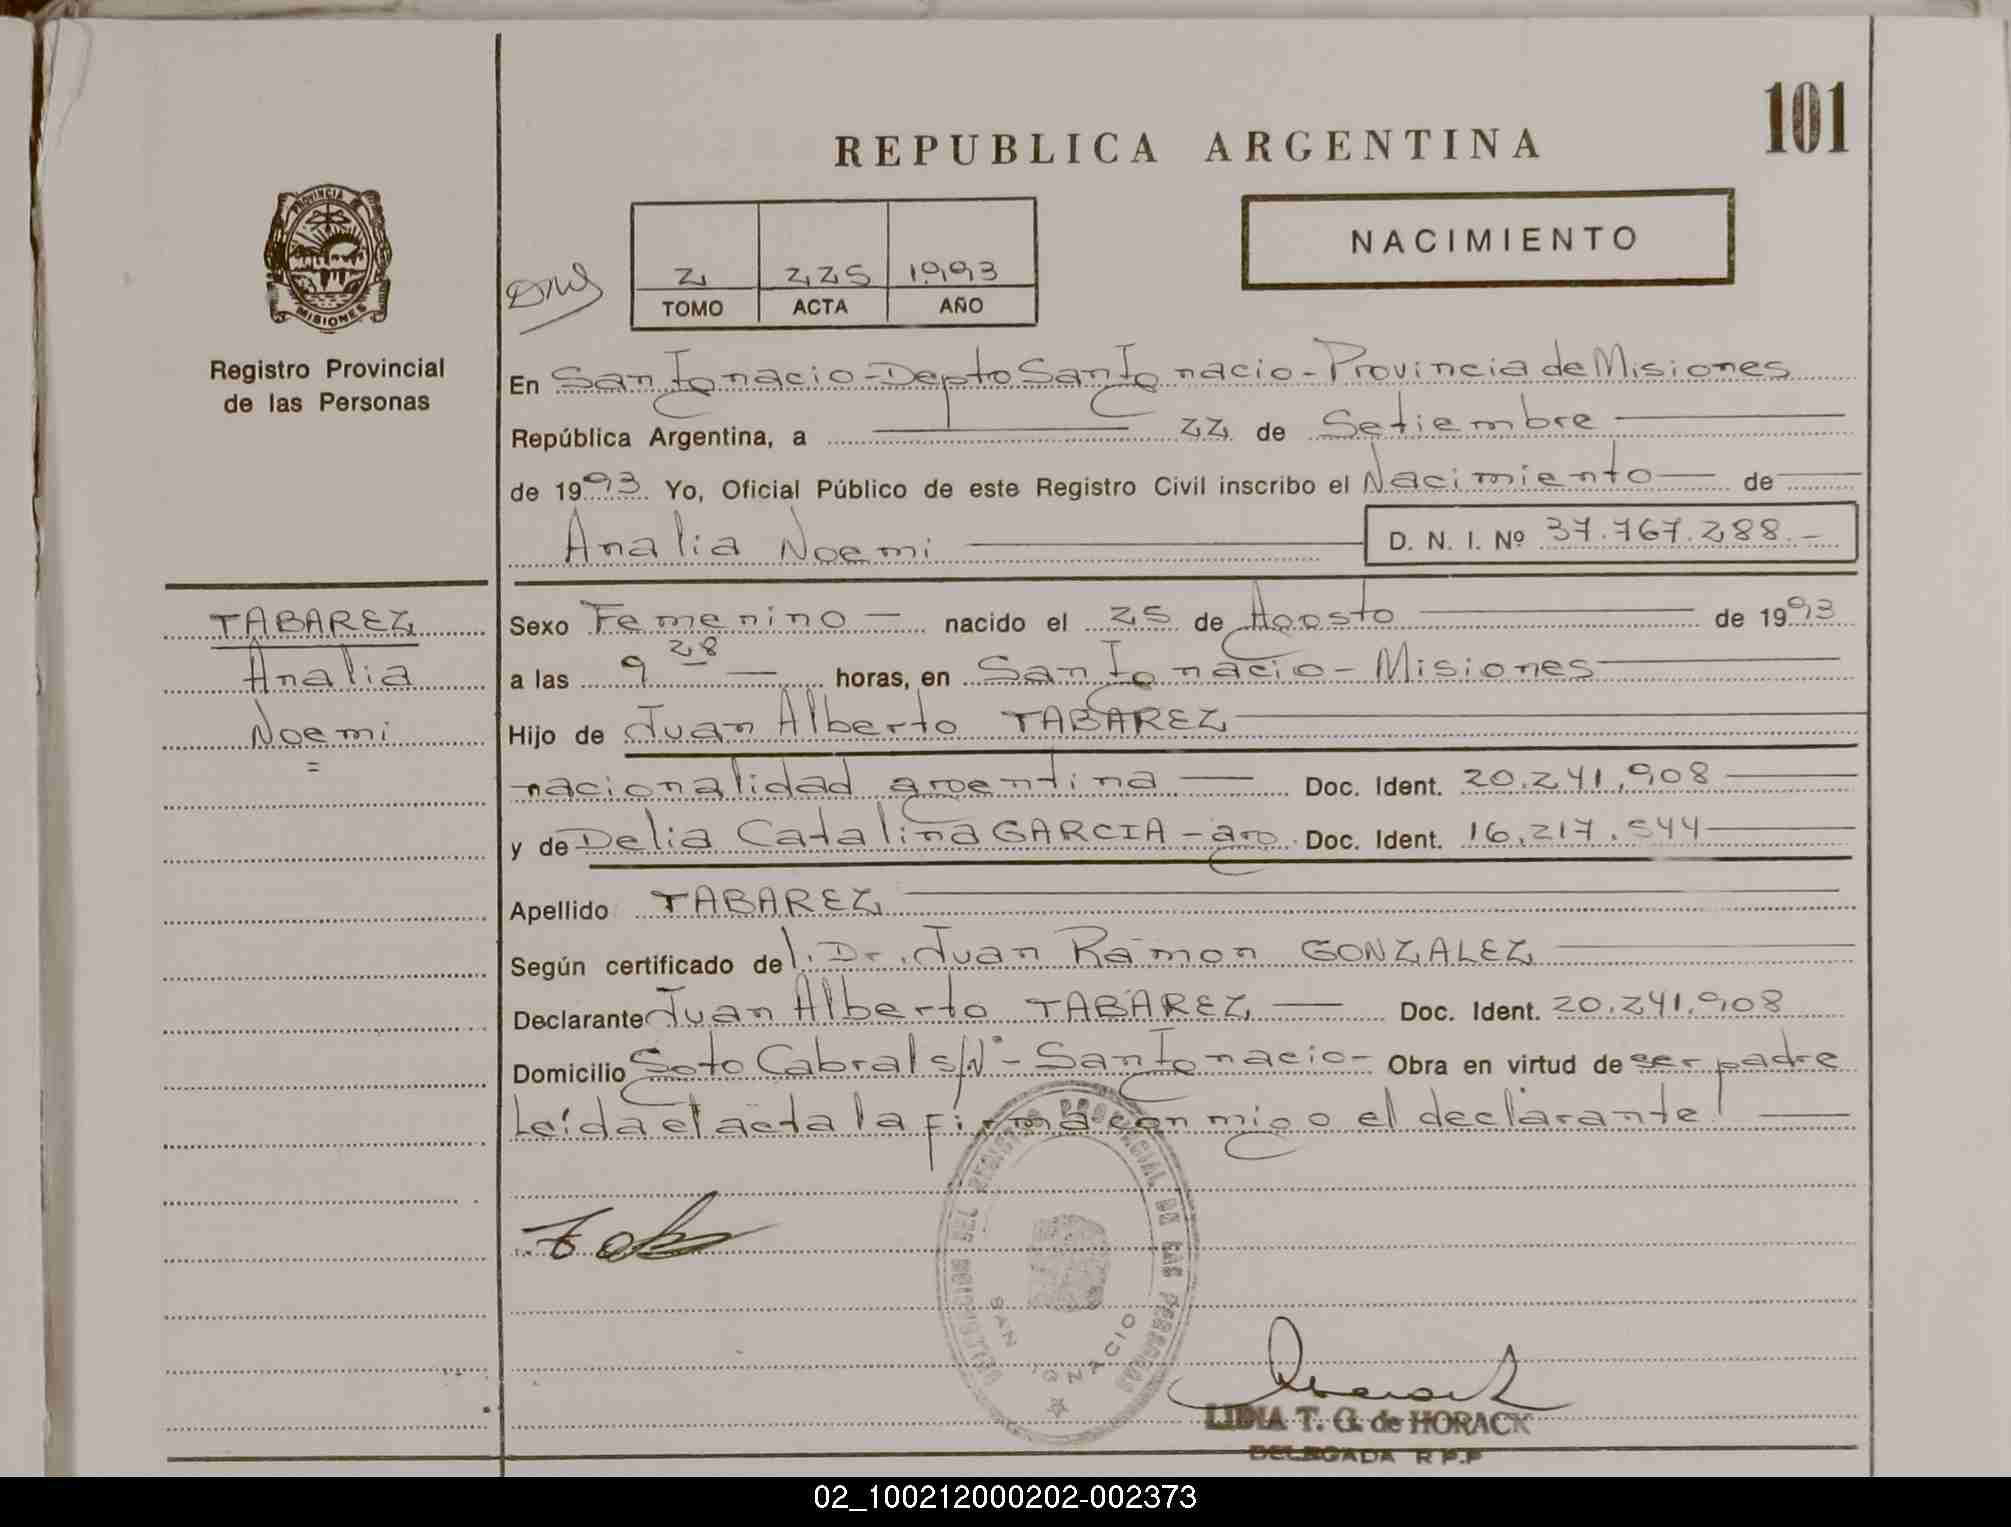 101
REPUBLICA ARGENTINA
PROVINCIA DE
MISIONES
NACIMIENTO
2 225 1993
TOMO ACTA AÑO
Registro Provincial
de las Personas
En San Ignacio - Depto San Ignacio - Provincia de Misiones
República Argentina, a 22 de Setiembre
de 1993 Yo, Oficial Público de este Registro Civil inscribo el Nacimiento de
Analia Noemi D. N. I. Nº 37.767.288.-
TABAREZ
Analia
Noemi
=
Sexo Femenino nacido el 25 de Agosto de 1993
a las 9 28 horas, en San Ignacio - Misiones
Hijo de Juan Alberto TABAREZ
nacionalidad argentina Doc. Ident. 20.241.908
y de Delia Catalina GARCIA - arg. Doc. Ident. 16.217.544
Apellido TABAREZ
Según certificado de l. Dr. Juan Ramon GONZALEZ
Declarante Juan Alberto TABAREZ Doc. Ident. 20.241.908
Domicilio Soto Cabral s/Nº - San Ignacio - Obra en virtud de ser padre
Leída el acta la firma conmigo el declarante
DEL REGISTRO PROVINCIAL DE LAS PERSONAS
SAN IGNACIO
LIDIA T. G. de HORACK
DELEGADA R P.P
02_100212000202-002373